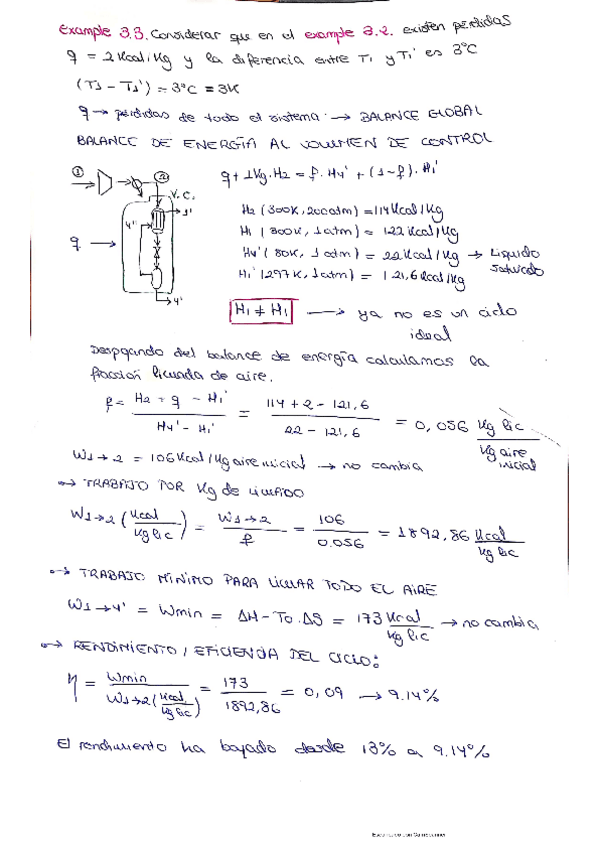 Example 3.3. Considerar que en el example 3.2. existen pérdidas
q = 2 Kcal/Kg y la diferencia entre T1 y T1' es 3°C
(T1 - T1') = 3°C = 3K
q → pérdidas de todo el sistema → BALANCE GLOBAL
BALANCE DE ENERGÍA AL VOLUMEN DE CONTROL
q + 1Kg·H2 = f·H4' + (1-f)·H1'
1
2
V.C.
1'
4''
q →
4'
H2 (300K, 200atm) = 114 Kcal/Kg
H1 (300K, 1atm) = 122 Kcal/Kg
H4' (80K, 1atm) = 22 Kcal/Kg → Líquido saturado
H1' (297K, 1atm) = 121,6 Kcal/Kg
H1 ≠ H1 → ya no es un ciclo
ideal
Despejando del balance de energía calculamos la
fracción licuada de aire.
f = (H2 + q - H1') / (H4' - H1') = (114 + 2 - 121,6) / (22 - 121,6) = 0,056 Kg lic / Kg aire inicial
W1→2 = 106 Kcal/Kg aire inicial → no cambia
→ TRABAJO POR Kg de LICUADO
W1→2 (Kcal/Kg lic) = W1→2 / f = 106 / 0.056 = 1892,86 Kcal/Kg lic
→ TRABAJO MÍNIMO PARA LICUAR TODO EL AIRE
W1→4' = Wmin = ΔH - To·ΔS = 173 Kcal/Kg lic → no cambia
→ RENDIMIENTO / EFICIENCIA DEL CICLO:
η = Wmin / W1→2 (Kcal/Kg lic) = 173 / 1892,86 = 0,09 → 9.14%
El rendimiento ha bajado desde 13% a 9.14%
Escaneado con CamScanner